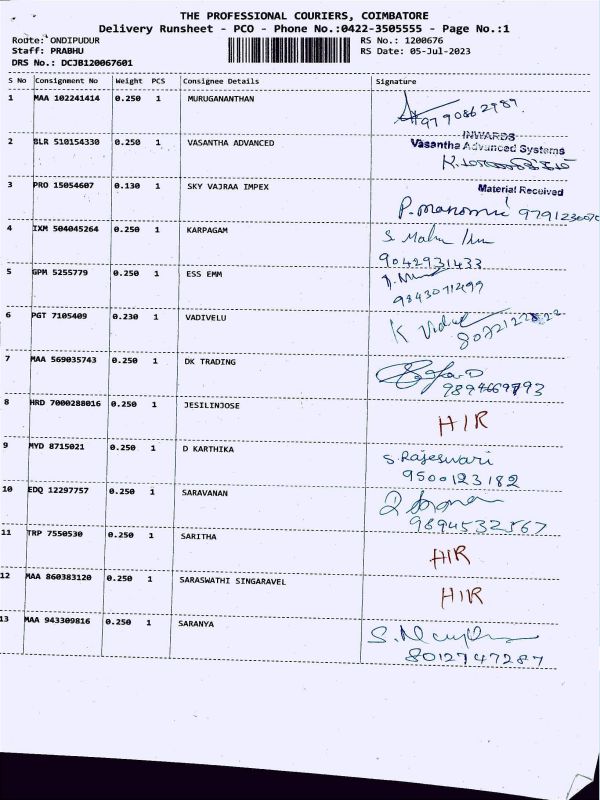 THE PROFESSIONAL COURIERS, COIMBATORE
Delivery Runsheet - PCO - Phone No.:0422-3505555 - Page No.:1
Route: ONDIPUDUR RS No.: 1200676
Staff: PRABHU RS Date: 05-Jul-2023
DRS No.: DCJB120067601
S No Consignment No Weight PCS Consignee Details Signature
1 MAA 102241414 0.250 1 MURUGANANTHAN
9790862989
INWARDS
2 BLR 510154330 0.250 1 VASANTHA ADVANCED Vasantha Advanced Systems
3 PRO 15054607 0.130 1 SKY VAJRAA IMPEX Material Received
4 IXM 504045264 0.250 1 KARPAGAM
9042931433
5 GPM 5255779 0.250 1 ESS EMM
9843071499
6 PGT 7105409 0.230 1 VADIVELU
7 MAA 569035743 0.250 1 DK TRADING
8 HRD 7000288016 0.250 1 JESILINJOSE HIR
9 MYD 8715021 0.250 1 D KARTHIKA S. Rajeswari
9500123182
10 EDQ 12297757 0.250 1 SARAVANAN
9894532567
11 TRP 7550530 0.250 1 SARITHA HIR
12 MAA 860383120 0.250 1 SARASWATHI SINGARAVEL HIR
13 MAA 943309816 0.250 1 SARANYA
8012747287